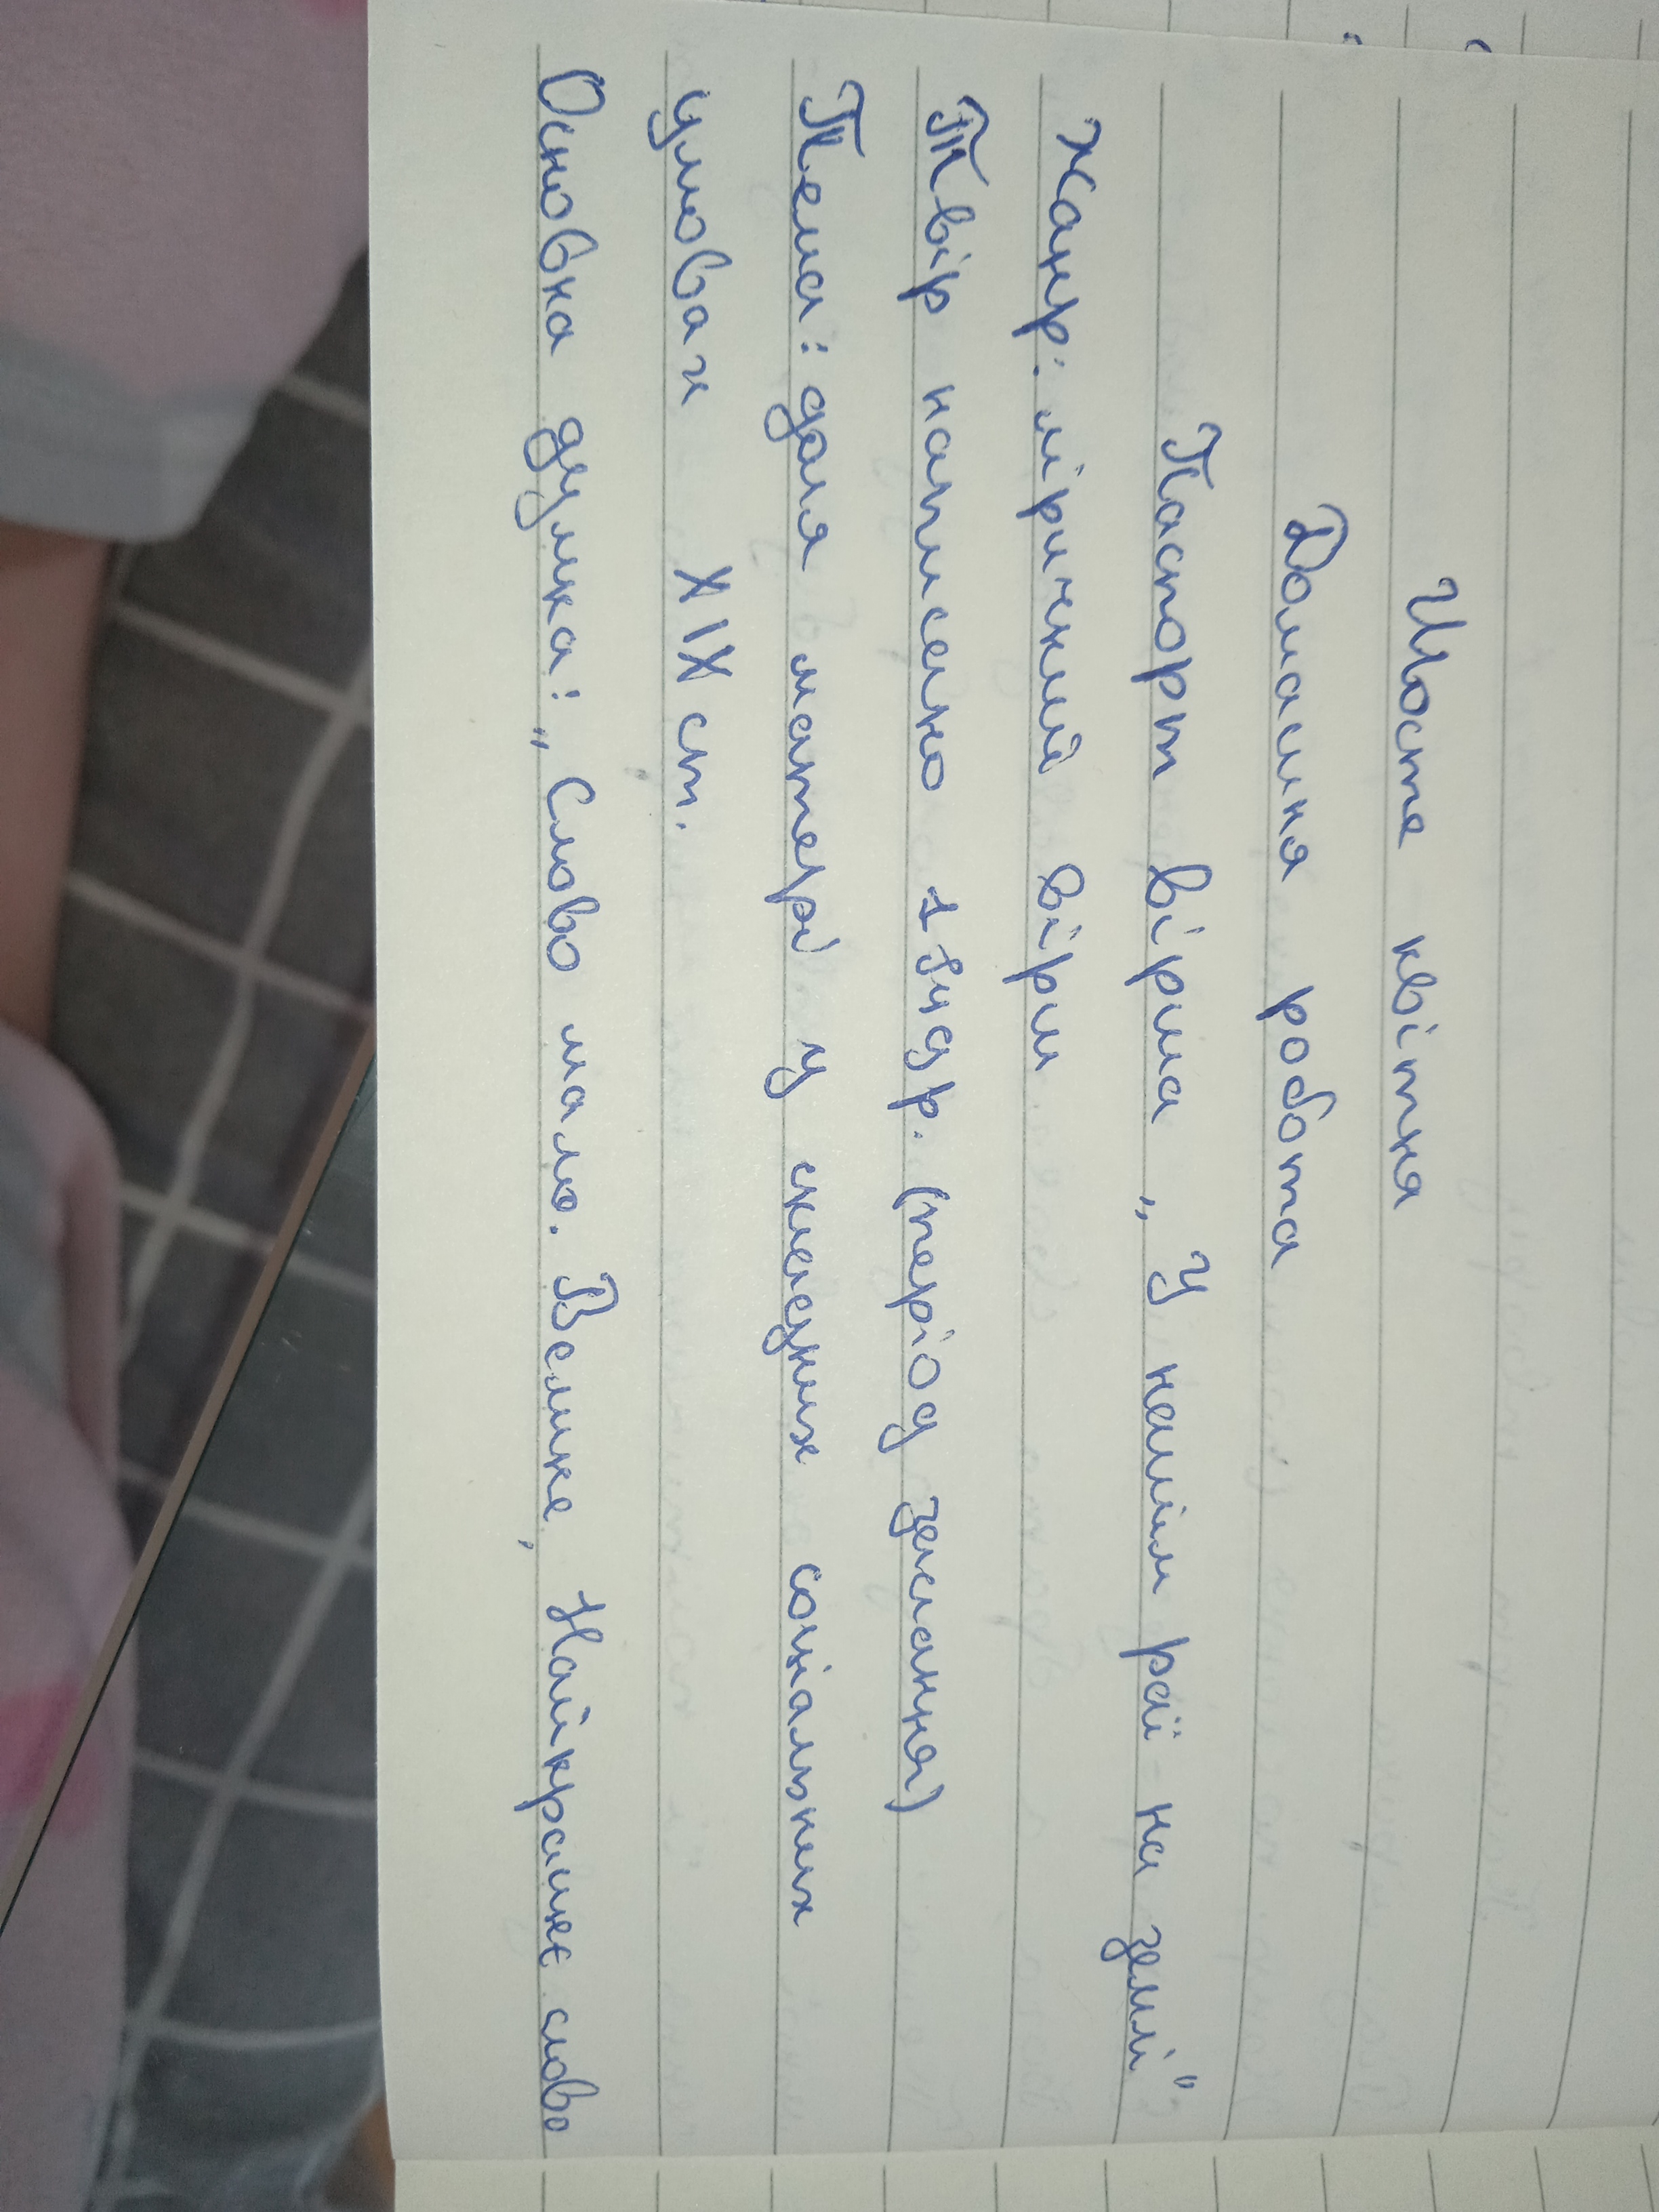 Шосте квітня
Домашня робота
Паспорт вірша „У нашім раї на землі"
Жанр: ліричний вірш
Твір написано 184др. (період заслання)
Тема: доля матері у складних соціальних
умовах XIX ст.
Основна думка: „Слово мамо. Велике, Найкраще слово